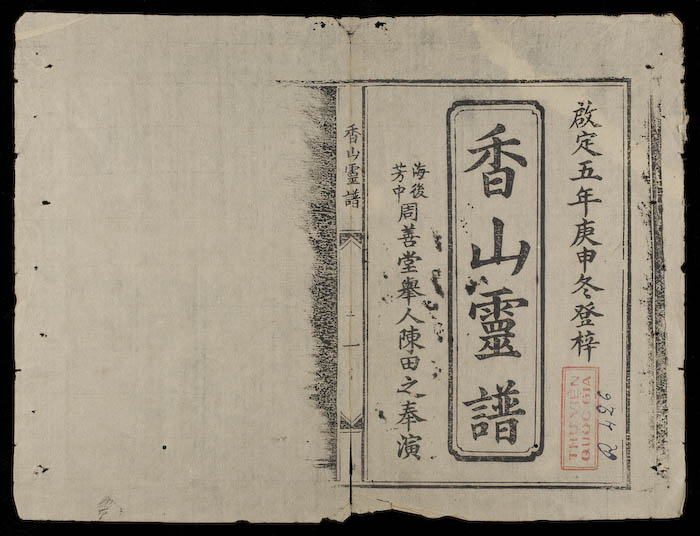 啟定五年庚申冬登梓
香山靈譜
海後
芳中
周善堂舉人陳田之奉演
香山靈譜
一
THƯ VIỆN
QUỐC GIA